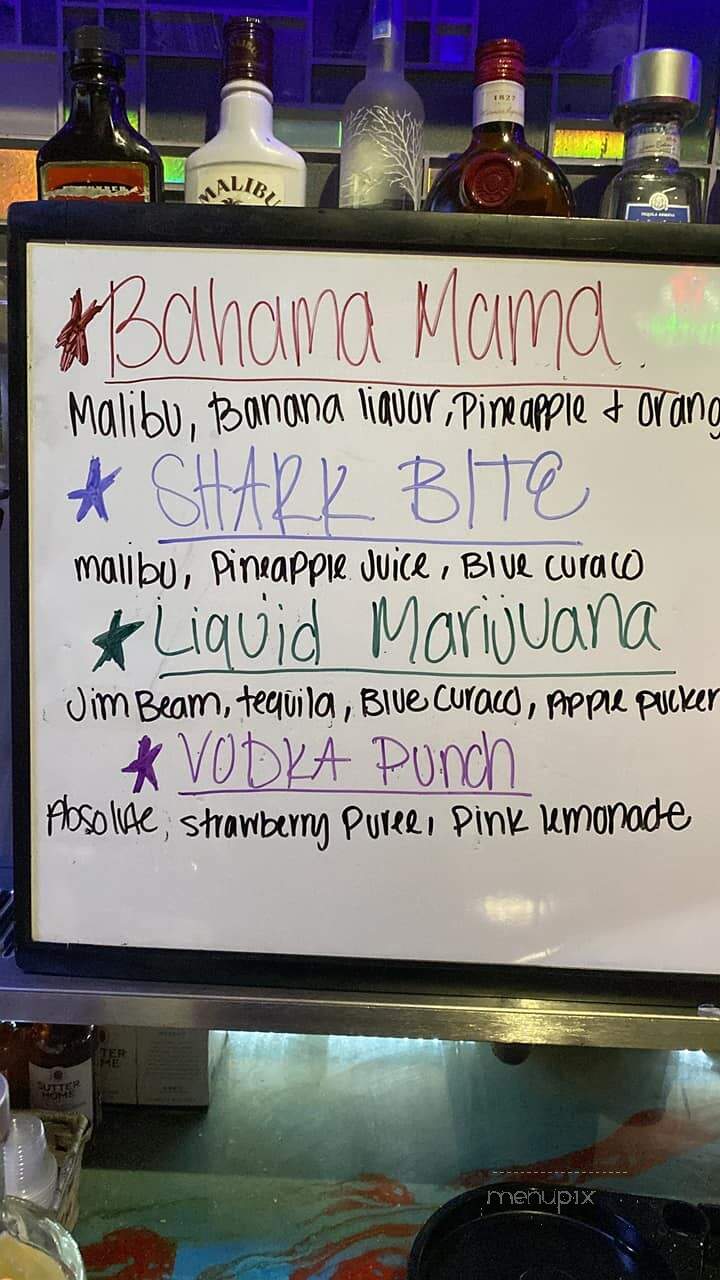 MALIBU
1827
TEQUILA
Bahama Mama
Malibu, Banana liquor, Pineapple + orang
SHARK BITE
malibu, Pineapple Juice, Blue curaco
Liquid Marijuana
Jim Beam, tequila, Blue Curaco, Apple pucker
VODKA Punch
Absolute, strawberry Puree, Pink lemonade
SUTTER
HOME
TER
ME
menupix